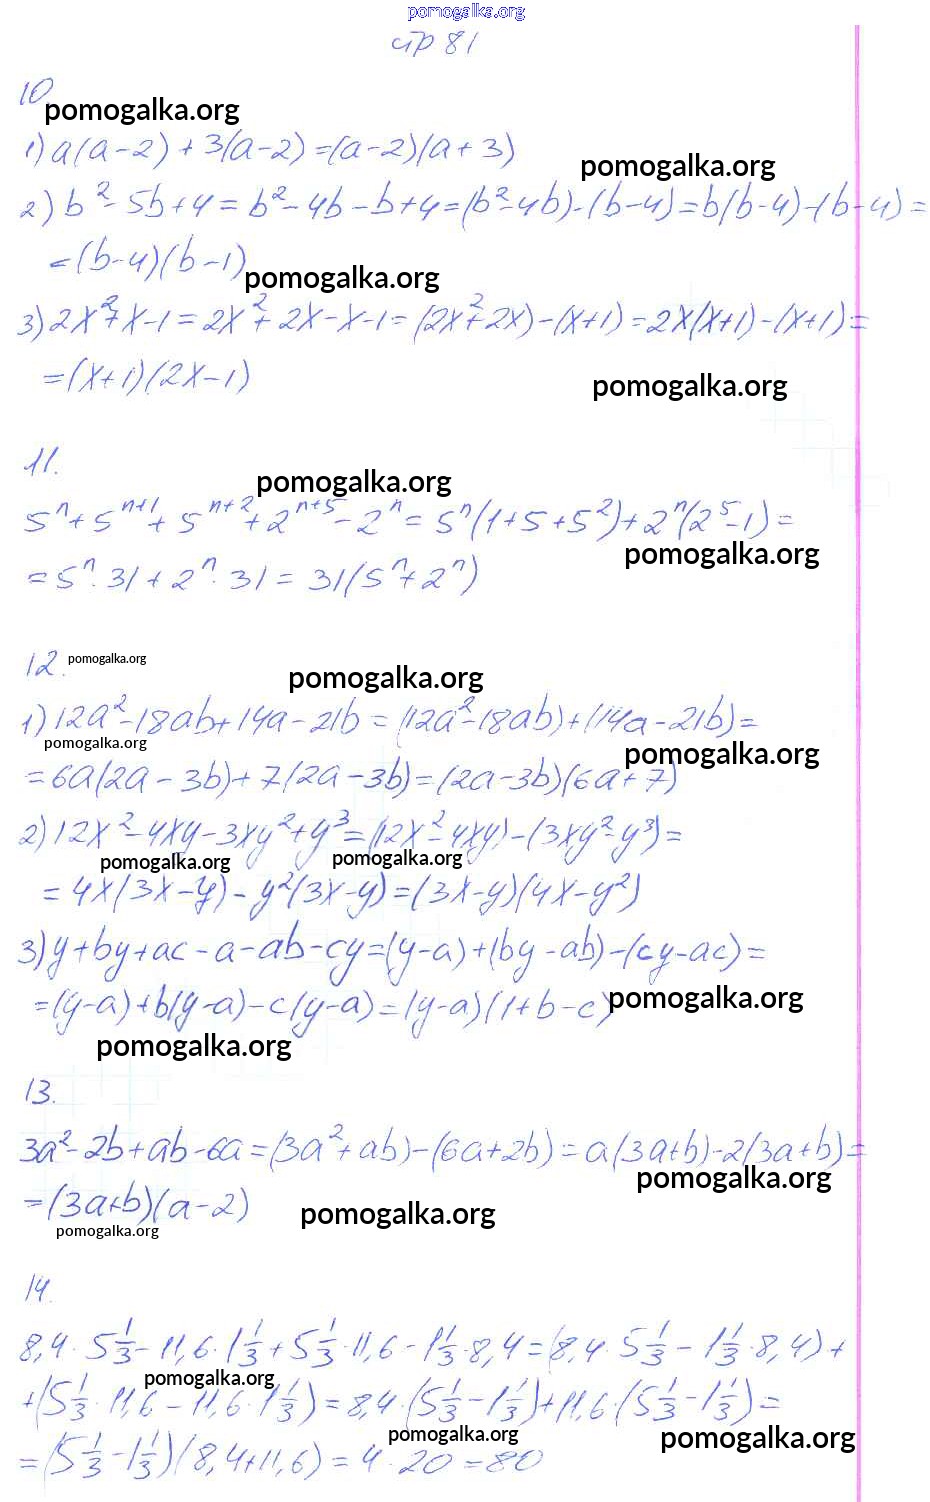 pomogalka.org
стр 81
10.
pomogalka.org
1) a(a-2)+3(a-2)=(a-2)(a+3)
pomogalka.org
2) b²-5b+4=b²-4b-b+4=(b²-4b)-(b-4)=b(b-4)-(b-4)=
=(b-4)(b-1)
pomogalka.org
3) 2x²+x-1=2x²+2x-x-1=(2x²+2x)-(x+1)=2x(x+1)-(x+1)=
=(x+1)(2x-1)
pomogalka.org
11.
pomogalka.org
5ⁿ+5ⁿ⁺¹+5ⁿ⁺²+2ⁿ⁺⁵-2ⁿ=5ⁿ(1+5+5²)+2ⁿ(2⁵-1)=
pomogalka.org
=5ⁿ·31+2ⁿ·31=31(5ⁿ+2ⁿ)
12. pomogalka.org
pomogalka.org
1) 12a²-18ab+14a-21b=(12a²-18ab)+(14a-21b)=
pomogalka.org
pomogalka.org
=6a(2a-3b)+7(2a-3b)=(2a-3b)(6a+7)
2) 12x²-4xy-3xy²+y³=(12x²-4xy)-(3xy²-y³)=
pomogalka.org pomogalka.org
=4x(3x-y)-y²(3x-y)=(3x-y)(4x-y²)
3) y+by+ac-a-ab-cy=(y-a)+(by-ab)-(cy-ac)=
=(y-a)+b(y-a)-c(y-a)=(y-a)(1+b-c)
pomogalka.org
pomogalka.org
13.
3a²-2b+ab-6a=(3a²+ab)-(6a+2b)=a(3a+b)-2(3a+b)=
pomogalka.org
=(3a+b)(a-2)
pomogalka.org
pomogalka.org
14.
8,4·5 1/3-11,6·1 1/3+5 1/3·11,6-1 1/3·8,4=(8,4·5 1/3-1 1/3·8,4)+
pomogalka.org
+(5 1/3·11,6-11,6·1 1/3)=8,4·(5 1/3-1 1/3)+11,6·(5 1/3-1 1/3)=
pomogalka.org
pomogalka.org
=(5 1/3-1 1/3)(8,4+11,6)=4·20=80